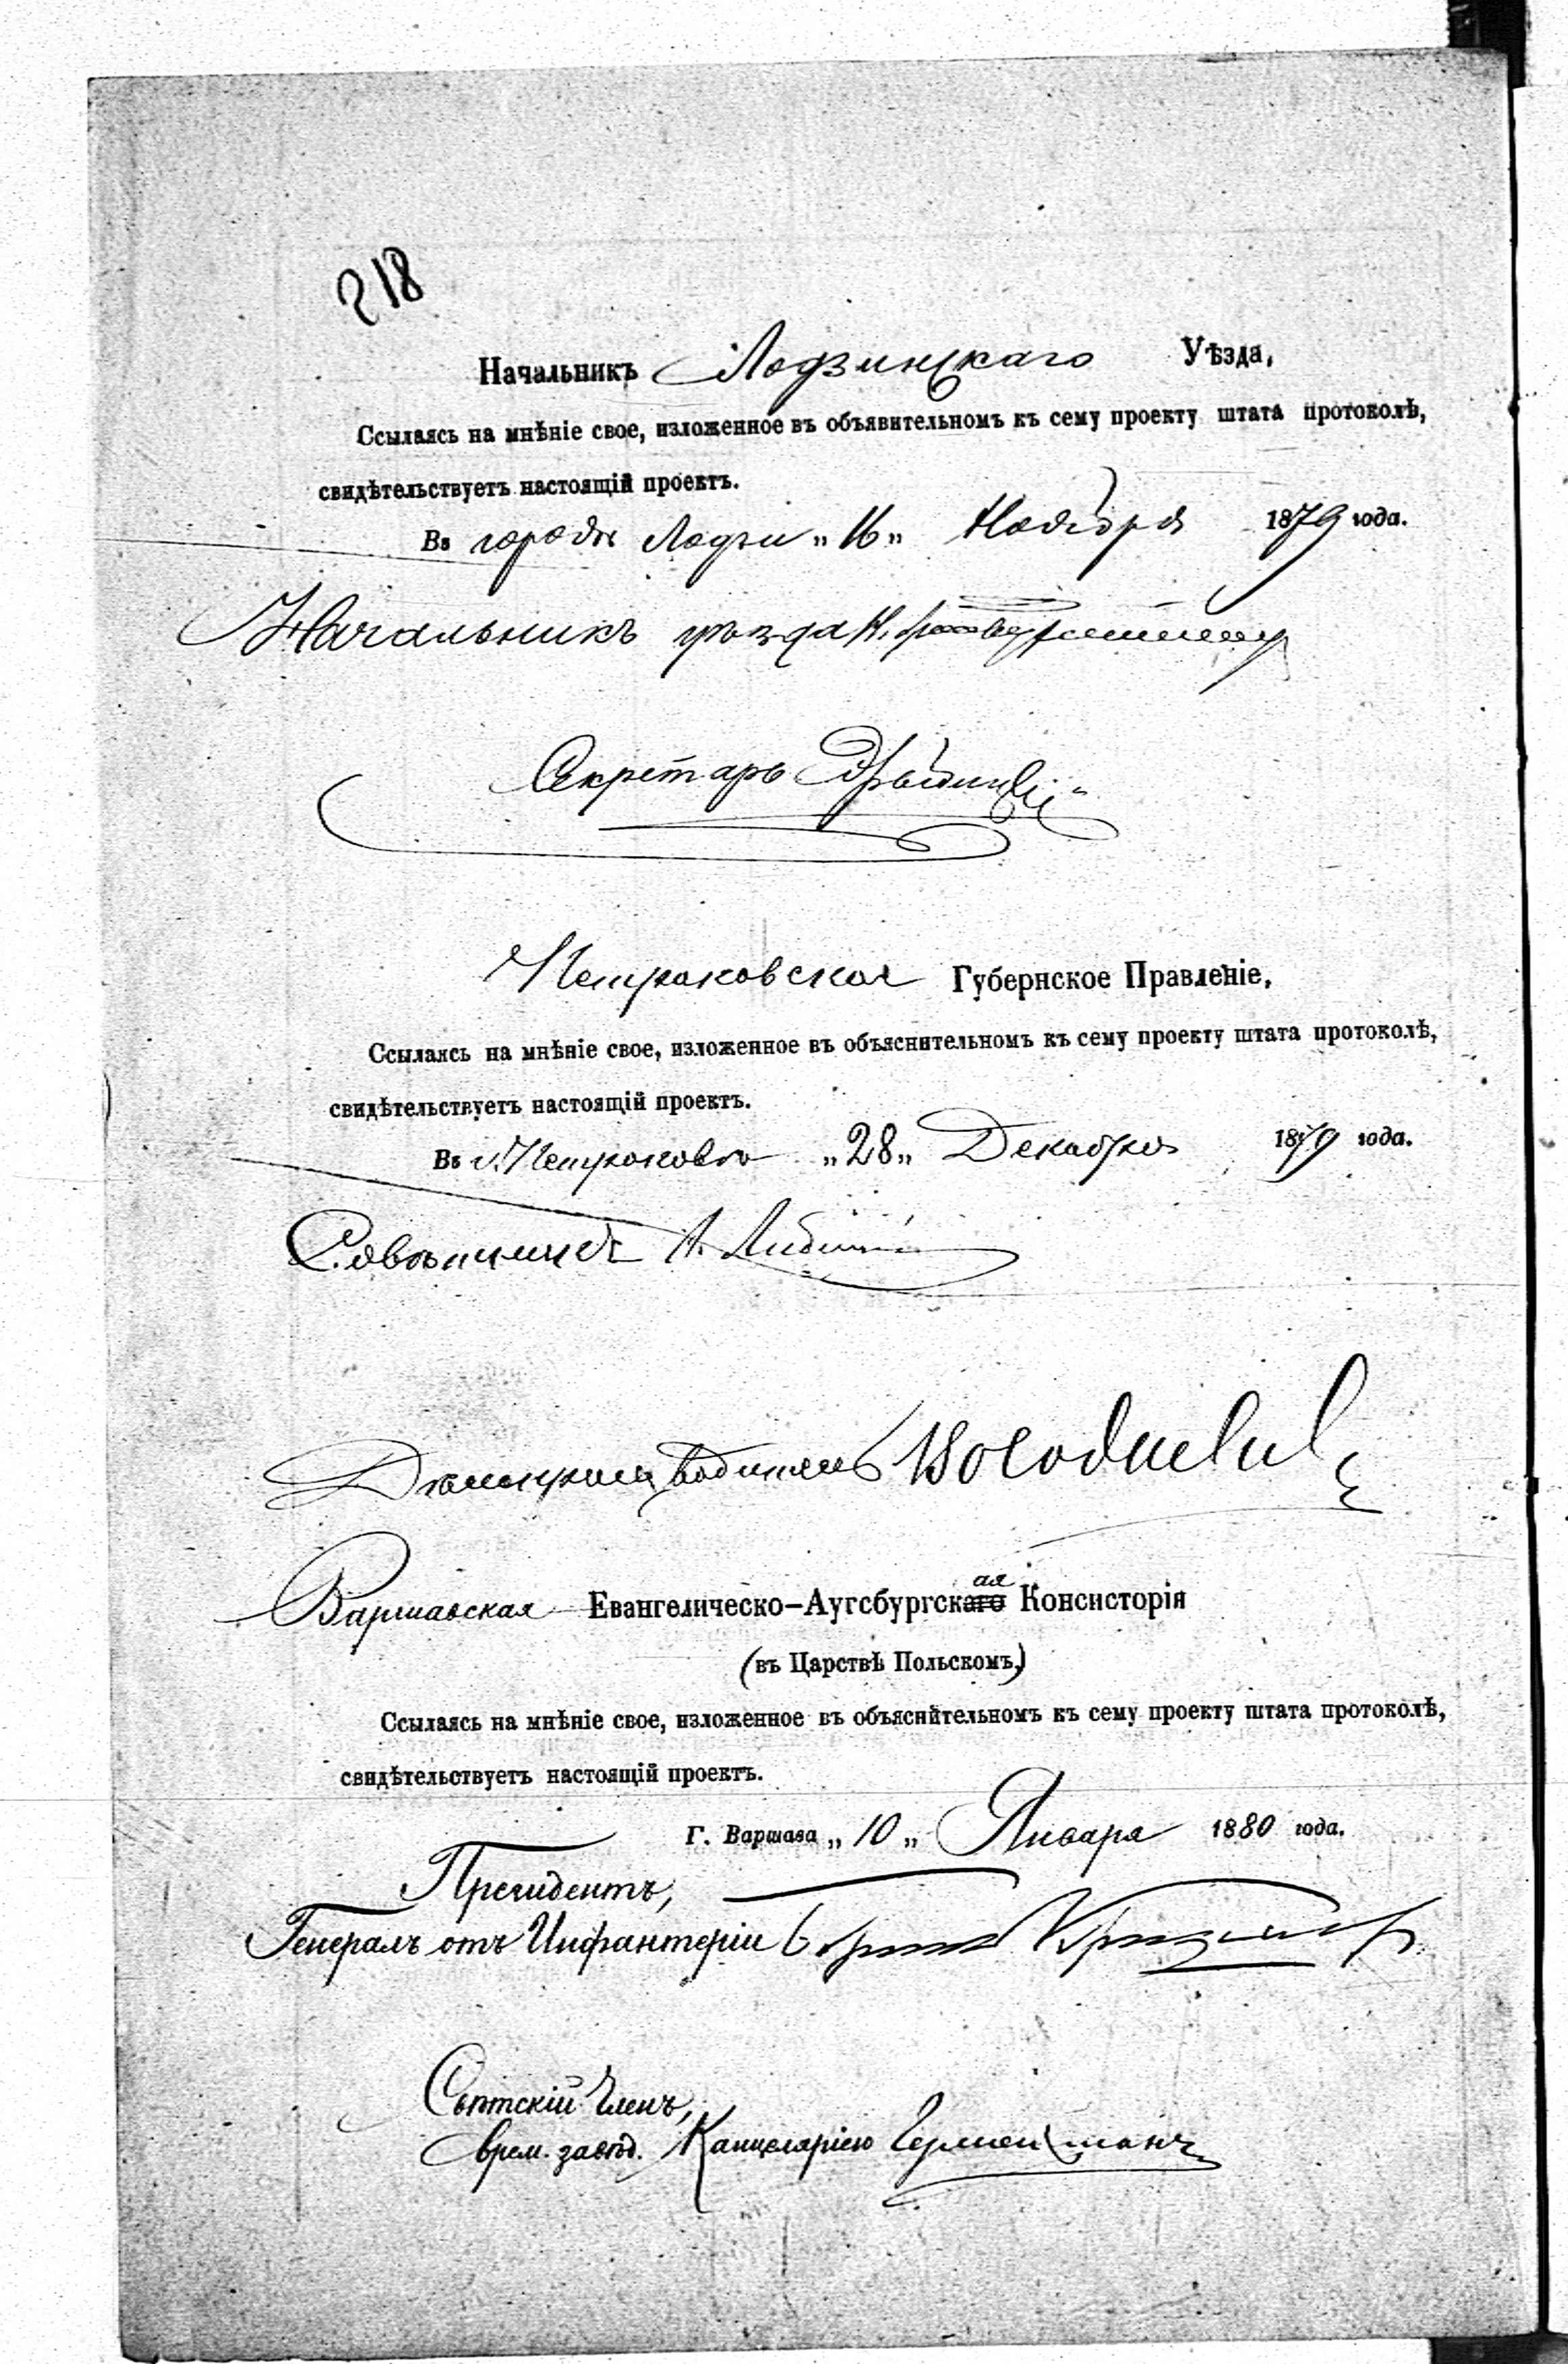 218
Начальникъ Лодзинскаго Уѣзда,
Ссылаясь на мнѣніе свое, изложенное въ объявительномъ къ сему проекту штата протоколѣ,
свидѣтельствуетъ настоящій проектъ.
Въ городѣ Лодзи „16„ Ноября 1879 года.
Начальникъ уѣзда
Секретарь
Петроковское Губернское Правленіе,
Ссылаясь на мнѣніе свое, изложенное въ объяснительномъ къ сему проекту штата протоколѣ,
свидѣтельствуетъ настоящій проектъ.
Въ г. Петроковѣ „28„ Декабря 1879 года.
Совѣтникъ А.
Дѣлопроизводитель
Варшавская Евангелическо-Аугсбургская Консисторія
(въ Царствѣ Польскомъ,)
Ссылаясь на мнѣніе свое, изложенное въ объяснительномъ къ сему проекту штата протоколѣ,
свидѣтельствуетъ настоящій проектъ.
Г. Варшава „10„ Января 1880 года.
Президентъ,
Генералъ отъ Инфантеріи
Свѣтскій Членъ,
врем. завѣд. Канцеляріею